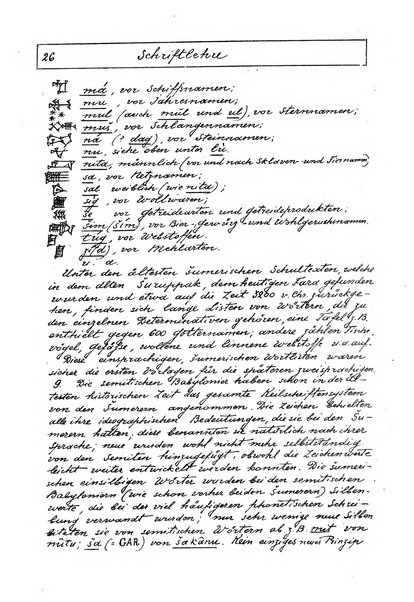 26 Schriftlehre
má, vor Schiffsnamen;
mu, vor Jahresnamen;
mul (auch múl und ul), vor Sternnamen;
muš, vor Schlangennamen;
na (: dag), vor Steinnamen;
nu, siehe oben unter lú.
nita, männlich (vor und nach Sklaven- und Tiernamen)
sa, vor Netznamen;
sal weiblich (wie nita);
síg, vor Wollwaren;
še vor Getreidearten und Getreideprodukten;
šim (ším), vor Bier-, Gewürz- und Wohlgeruchsnamen.
túg, vor Webstoffen.
vor Mehlarten.
u. a.
Unter den ältesten sumerischen Schultexten, welche
in dem alten Šuruppak, dem heutigen Fara gefunden
wurden und etwa auf die Zeit v. Chr. zurückge-
hen, finden sich lange Listen von Wörtern die zu
den einzelnen Determinativen gehören, eine Tafel z. B.
enthielt gegen 600 Götternamen, andere zählen Fische,
vögel, Gefässe, wollene und linnene Webstoffe u. a. auf.
Diese einsprachigen, sumerischen Wortlisten waren
sicher die ersten Vorlagen für die späteren zweisprachigen.
9. Die semitischen Babylonier haben schon in der äl-
testen historischen Zeit das gesamte Keilschriftsystem
von den Sumerern angenommen. Die Zeichen behielten
alle ihre ideographischen Bedeutungen, die sie bei den Su-
merern hatten, diese benannten sie natürlich nach ihrer
Sprache; neue wurden wohl nicht mehr selbstständig
von den Semiten hinzugefügt, obwohl die Zeichenwerte
leicht weiter entwickelt werden konnten. Die sumeri-
schen einsilbigen Wörter wurden bei den semitischen
Babyloniern (wie schon vorher bei den Sumerern) Silben-
werte, die bei der viel häufigeren phonetischen Schrei-
bung verwandt wurden; nur sehr wenige neue Silben
leiteten sie von semitischen Wörtern ab z. B. mit von
mītu; šá (= GAR) von šakānu. Kein einziges neues Prinzip